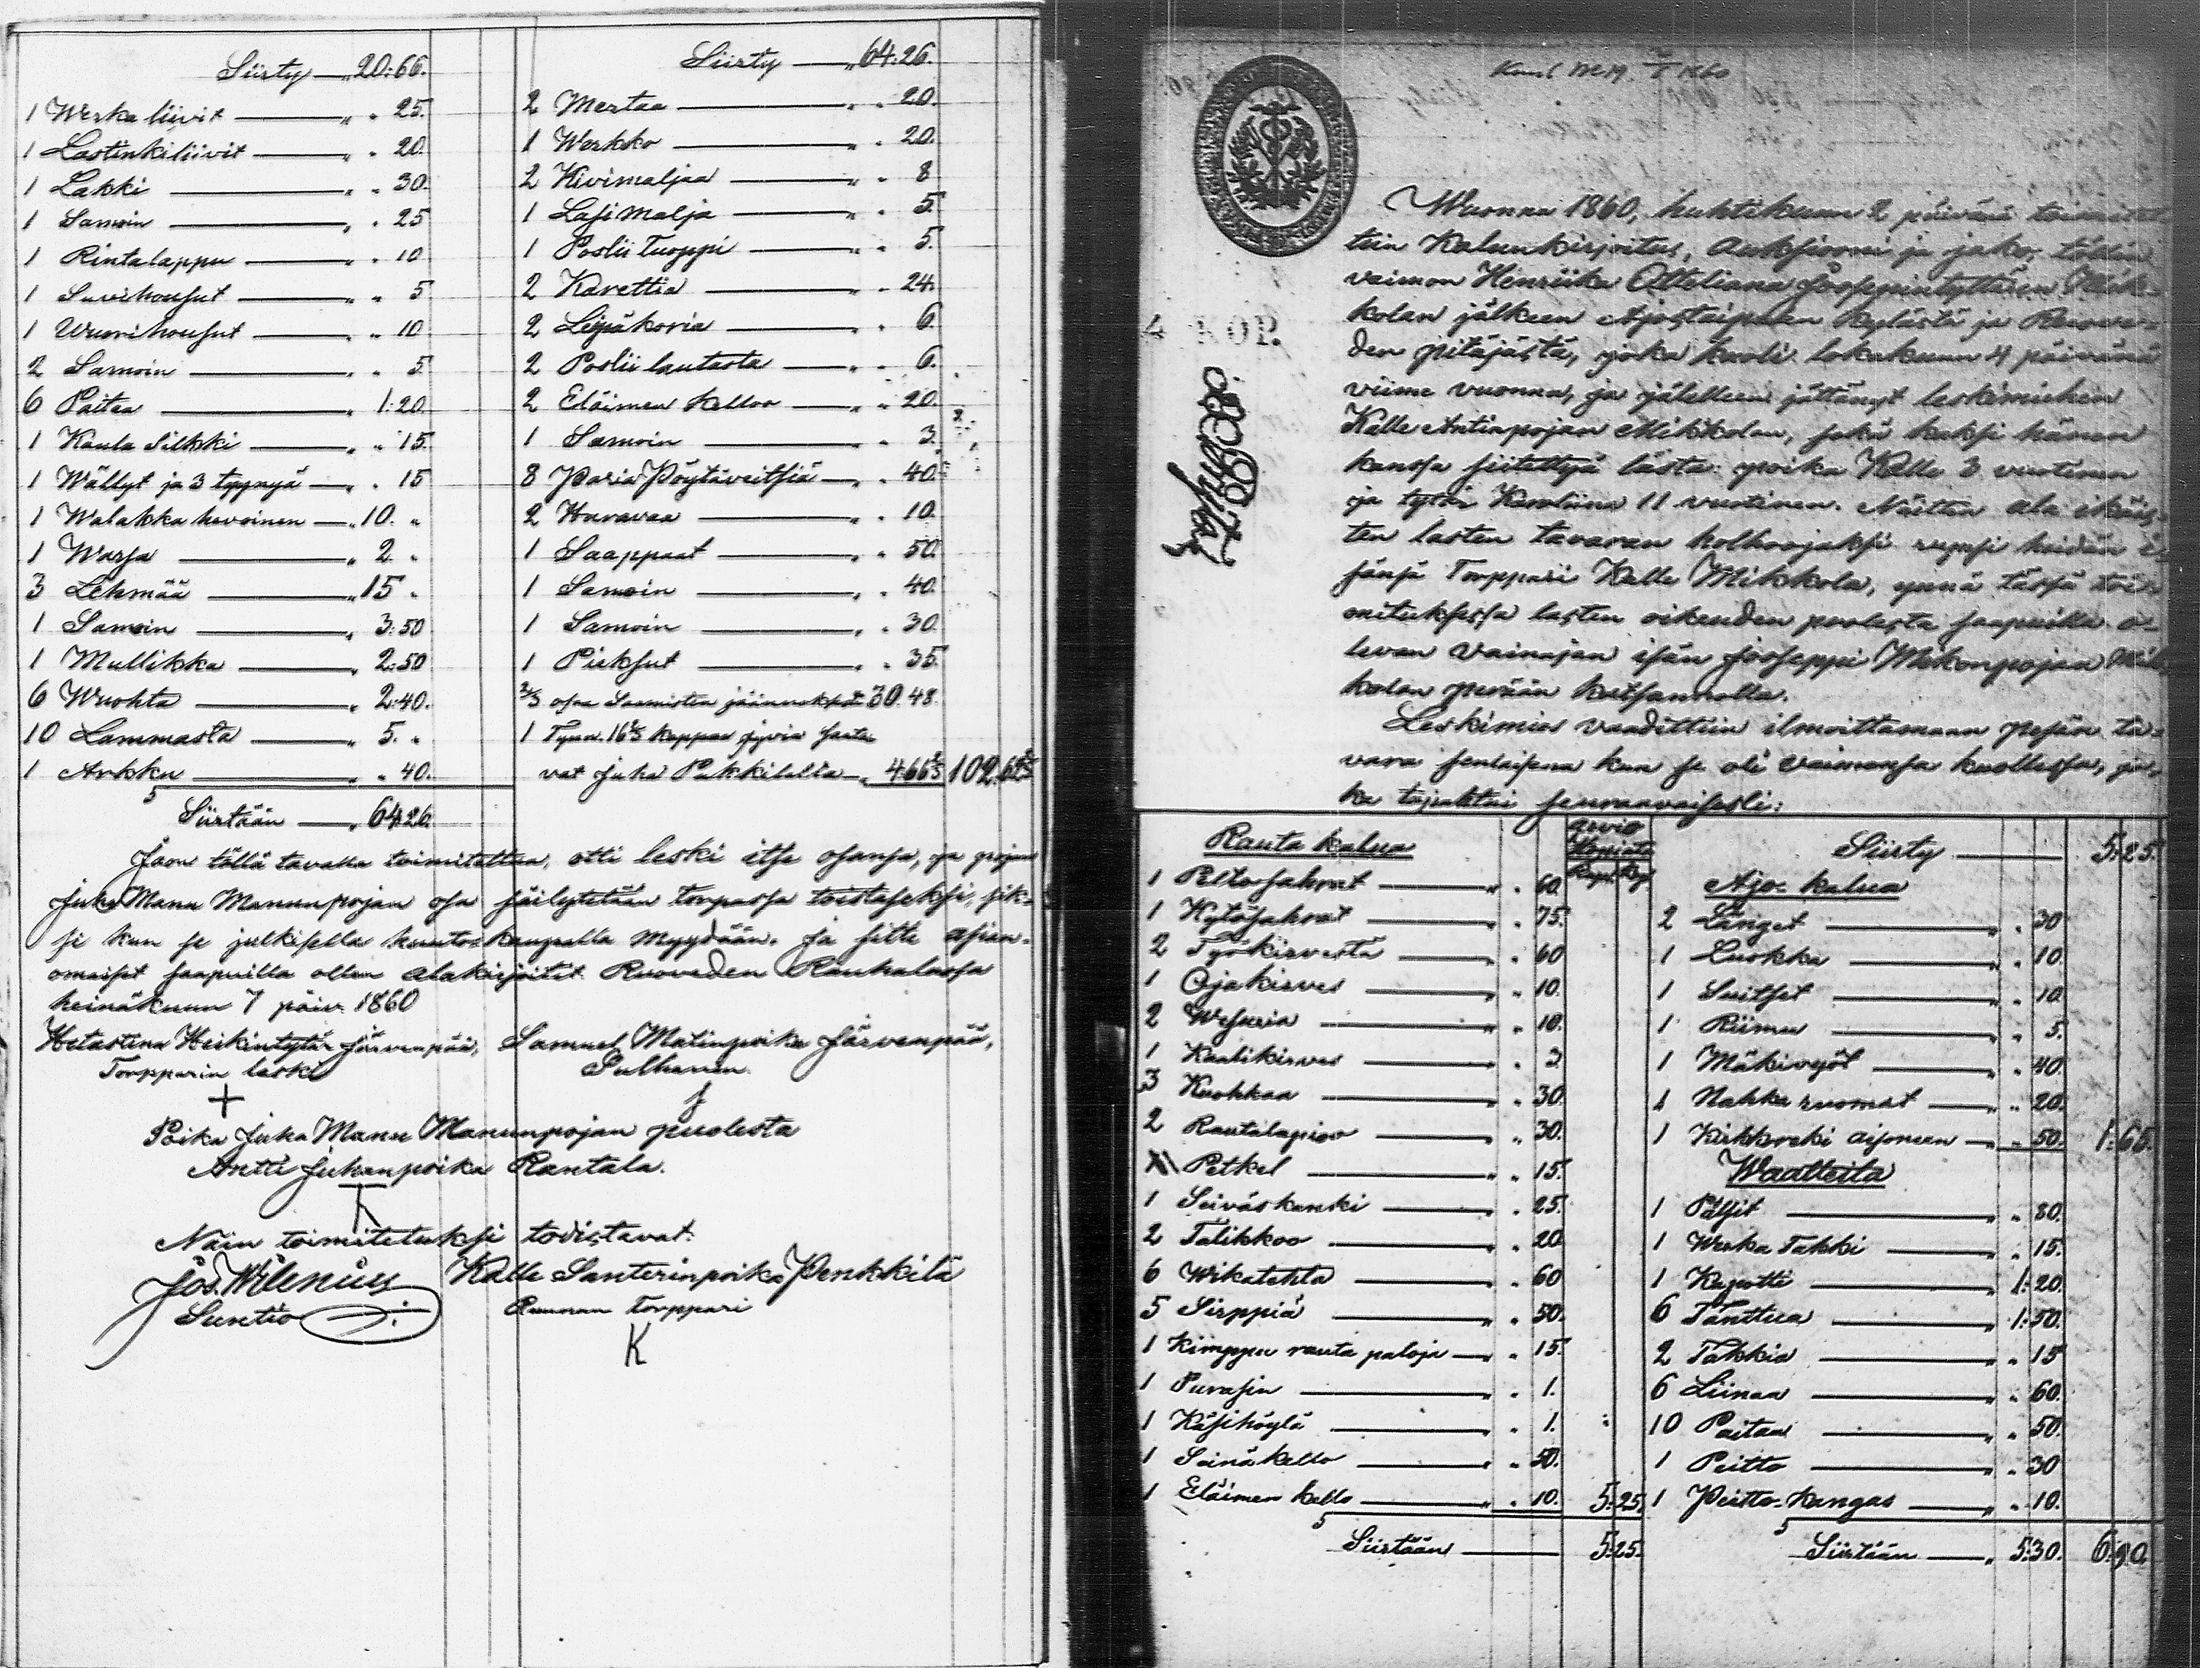 Siirty — „ 20:66.
1 Werka liivit — „ „ 25.
1 Lastinkiliivit — „ „ 20.
1 Lakki — „ „ 30.
1 Samoin — „ „ 25
1 Rintalappu — „ „ 10
1 Surihousut — „ „ 5
1 Wuorihousut — „ „ 10
2 Samoin — „ „ 5
6 Paitaa — „ 1:20.
1 Kaula Silkki — „ „ 15.
1 Wällyt ja 3 tyynyä — „ „ 15
1 Walakka hevoinen — „ 10. „
1 Warsa — „ 2 „
3 Lehmää — „ 15 „
1 Samoin — „ 3:50
1 Mullikka — „ 2:50
6 Wuohta — „ 2:40.
10 Lammasta — „ 5. „
1 Arkku — „ „ 40.
Siirtään — „ 64:26.
Siirty — „ 64:26.
2 Mertaa — „ „ 20.
1 Werkko — „ „ 20.
2 Kivimaljaa — „ „ 8
1 Lasi malja — „ „ 5.
1 Poslii Tuoppi — „ „ 5.
2 Karettia — „ „ 24.
2 Leipäkoria — „ „ 6.
2 Poslii lautasta — „ „ 6.
2 Eläimen Kelloo — „ „ 20.
1 Samoin — „ „ 3.
8 Paria Pöytäveitsiä — „ „ 40.
2 Haravaa — „ „ 10.
1 Saappaat — „ „ 50.
1 Samoin — „ „ 40.
1 Samoin — „ „ 30.
1 Pieksut — „ „ 35.
2/3 osaa 30.48.
1 Tynn. 16 2/3 kappaa jyviä saata
vat Juha Pukkilalla — „ 4.66 2/3 102.62 2/3
Jaon tällä tavalla toimitettua, otti leski itse osansa, ja pojan
Juha Manu Manunpojan osa säilytetään torpassa toistaseksi, sik-
si kun se julkisella huutokaupalla myydään. Ja sitte asian-
omaiset saapuilla ollen alakirjoitit. Ruoveden Rauhalassa
heinäkuun 7 päiv. 1860
Hetastina Heikintytär Järvenpää, Samuel Matinpoika Järvenpää,
Torpparin leski
+
Poika Juha Manu Manunpojan puolesta
Antti Juhanpoika Rantala.
Näin toimitetuksi todistavat:
Jos. Wilenius Kalle Santerinpoika Penkkilä
Suntio Torppari
K
4 KOP.
Wuonna 1860, huhtikuun 2 päivänä toimitet
tiin Kalunkirjoitus, auksiooni ja jako, tilän
vaimon Henriika Otteliana Jooseppintyttären Mik-
kolan jälkeen Ajostaipaleen kylästä ja Ruove-
den pitäjästä, joka kuoli lokakuun 4 päivänä
viime vuonna, ja jälelleen jättänyt leskimiehen
Kalle Antinpojan Mikkolan, sekä kaksi hänen
kanssa siitettyä lasta: poika Kalle 3 vuotinen
ja tytär Karoliina 11 vuotinen. Näitten ala ikäis-
ten lasten tavaran holhoojaksi rupesi heidän i-
sänsä Torppari Kalle Mikkola, ynnä tässä toi-
mituksessa lasten oikeuden puolesta saapuilla o-
levan vainajan isän Jooseppi Mikonpojan Mik
kolan perään katsannolla.
Leskimies vaadittiin ilmoittamaan pesän ta-
vara senlaisena kun se oli vaimonsa kuollessa, jo-
ka tapahtui seuraavaisesti:
Rauta kalua
Arvio
1 Peltosahrat — „ „ 60.
1 Kytösahrat — „ „ 75.
2 Työkirvestä — „ „ 60
1 Ojakirves — „ „ 10.
2 Wesuria — „ „ 10.
1 Kaalikirves — „ „ 3
3 Kuokkaa — „ „ 30.
2 Rautalapioo — „ „ 30.
1 Petkel — „ „ 15.
1 Seiväskanki — „ „ 25.
2 Talikkoo — „ „ 20
6 Wikatehta — „ „ 60
5 Sirppiä — „ „ 50.
1 Kimppu rauta paloja — „ „ 15.
1 Purasin — „ „ 1.
1 Käsihöylä — „ „ 1.
1 Seinäkello — „ „ 50.
1 Eläimen kello — „ „ 10. 5:25.
Siirtään — 5:25.
Siirty — 5:25.
Ajo-kalua
2 Länget — „ „ 30
1 Luokka — „ „ 10.
1 Suitset — „ „ 10
1 Riimu — „ „ 5.
1 Mäkivyöt — „ „ 40.
1 Nahka ruomat — „ „ 20.
1 Kirkkoreki aisoneen — „ „ 50. 1:65.
Waatteita
1 Pältsit — „ „ 80.
1 Werka Takki — „ „ 15.
1 Kapotti — „ 1:20.
6 Tänttua — „ 1:50.
2 Takkia — „ „ 15
6 Liinaa — „ „ 60.
10 Paitaa — „ „ 50.
1 Peitto — „ „ 30
1 Peitto-kangas — „ „ 10.
Siirtään — „ 5:30. 6:90